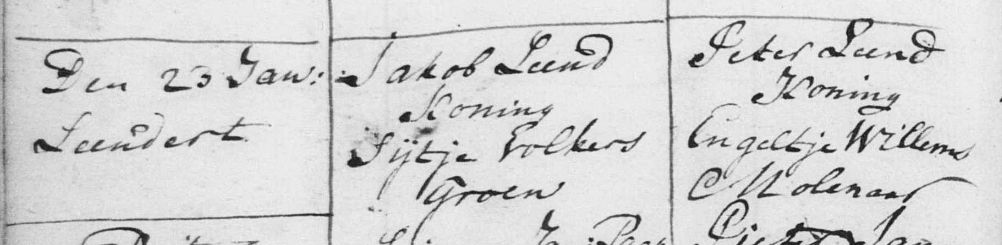 Den 23 Jan:
Leendert
Jakob Leend
Koning
Sijtje Volkers
Groen
Peter Leend
Koning
Engeltje Willems
Molenaar